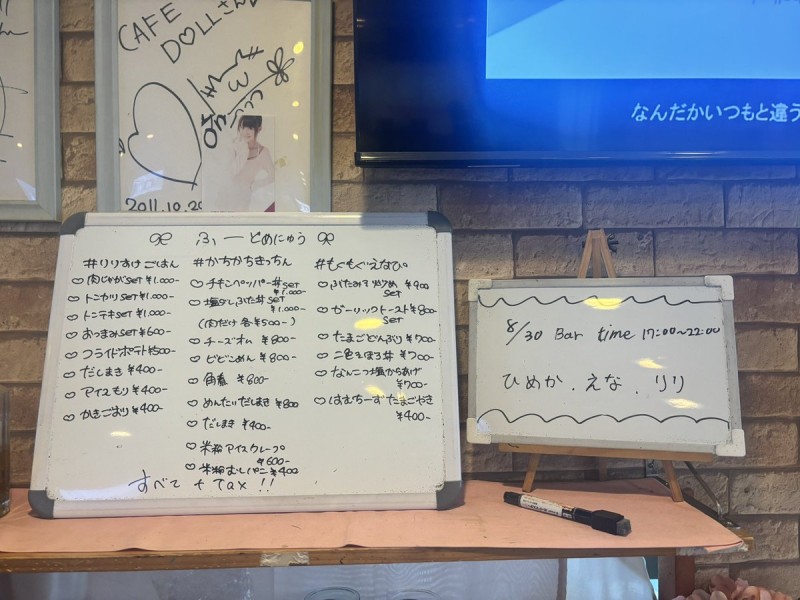 CAFE
DOLLさん
2011.10.20
なんだかいつもと違う
ふーどめにゅう
#りりすけごはん
♡肉じゃがSET ¥1.000-
♡トンカツSET ¥1.000-
♡トンテキSET ¥1.000-
♡おつまみSET ¥600-
♡フライドポテト ¥500-
♡だしまき ¥400-
♡アイスもり ¥400-
♡かきごおり ¥400-
#かちかちきっちん
♡チキンペッパー丼SET
¥1.000-
♡塩ダレぶた丼SET
¥1.000-
(肉だけ 各¥500-)
♡チーズオム ¥800-
♡ビビンめん ¥800-
♡角煮 ¥800-
♡めんたいだしまき ¥800
♡だしまき ¥400-
♡米粉アイスクレープ
¥600-
♡米粉むしパン ¥400
#もぐもぐえなひ。
♡ぶたみそ炒め ¥900
SET
♡ガーリックトースト ¥800-
SET
♡たまごどんぶり ¥700-
♡二色そぼろ丼 ¥700-
♡なんこつ塩からあげ
¥700-
♡はむちーずたまごやき
¥400-
すべて + Tax !!
8/30 Bar time 17:00~22:00
ひめか . えな . りり